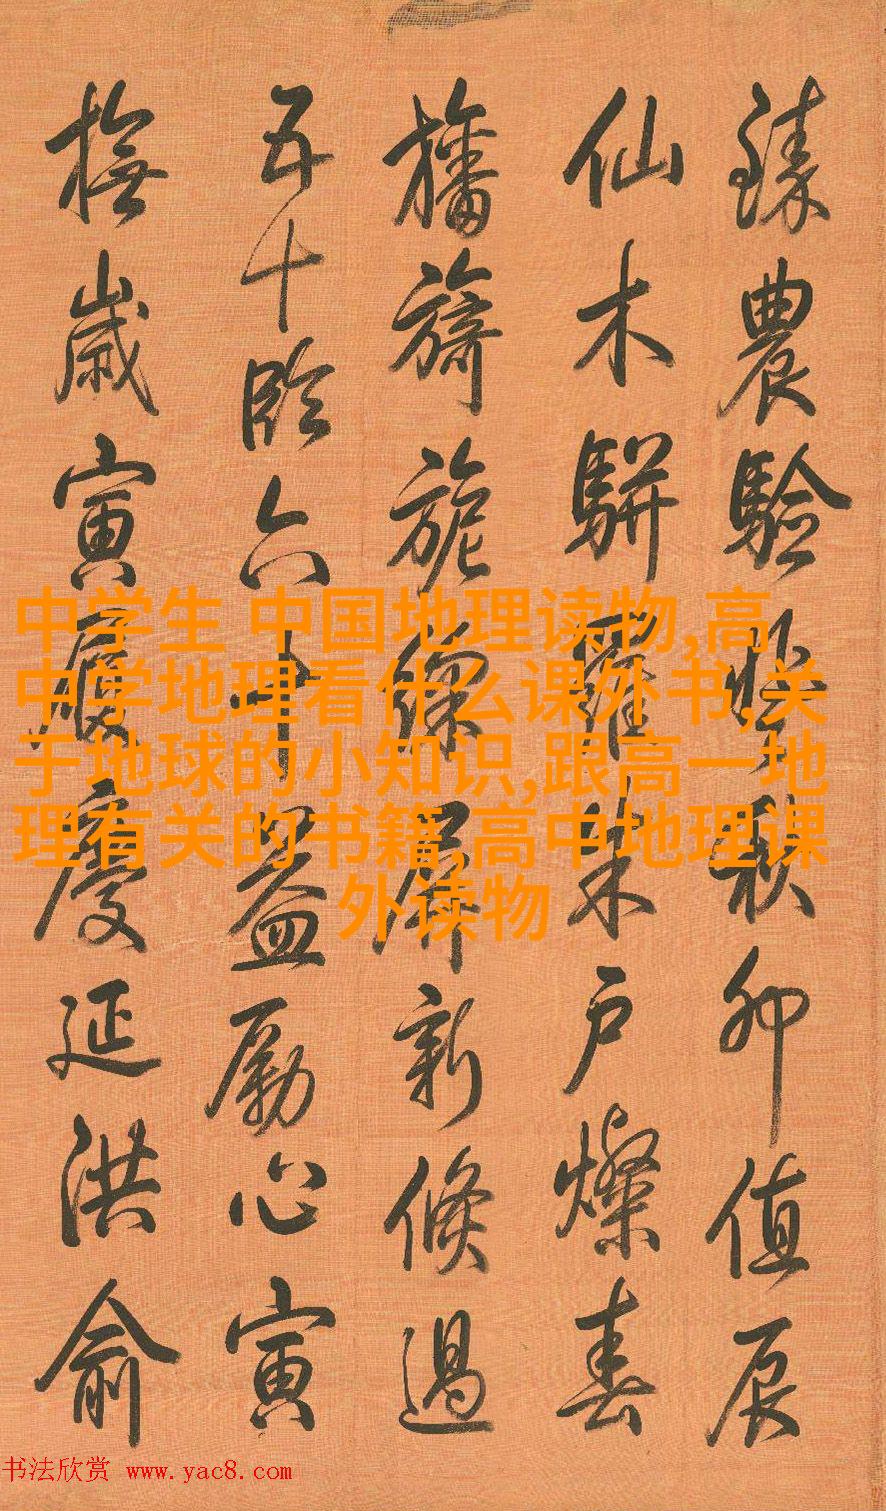 臻農驗秋卯值辰
仙木駢羅朱戶燦春
旛旖旎屏新倏過
五十臨六十益勵心寅
撫歲寅履慶延洪俞
中学生 中国地理读物,高
中学地理看什么课外书,关
于地球的小知识,跟高一地
理有关的书籍,高中地理课
外读物
书法欣赏 www.yac8.com